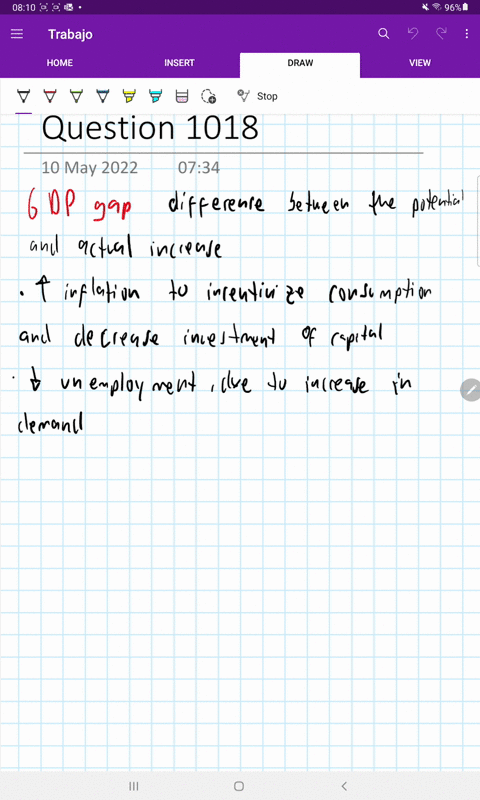 08:10 96%
Trabajo
HOME INSERT DRAW VIEW
Stop
Question 1018
10 May 2022 07:34
GDP gap difference between the potential
and actual increase
. ↑ inflation to incentivize consumption
and decrease investment of capital
. ↓ unemployment , due to increase in
demand